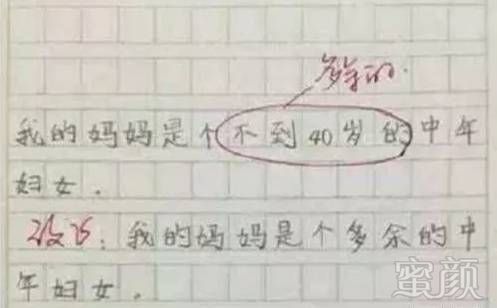 多余的.
我的妈妈是个不到40岁的中年
妇女.
改正:我的妈妈是个多余的中
年妇女.
蜜颜